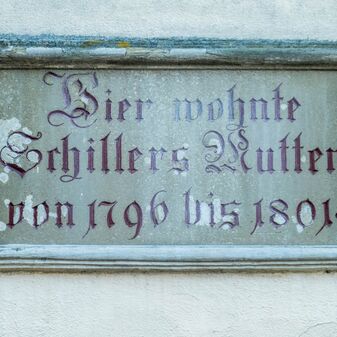 Hier wohnte
Schillers Mutter
von 1796 bis 1801.